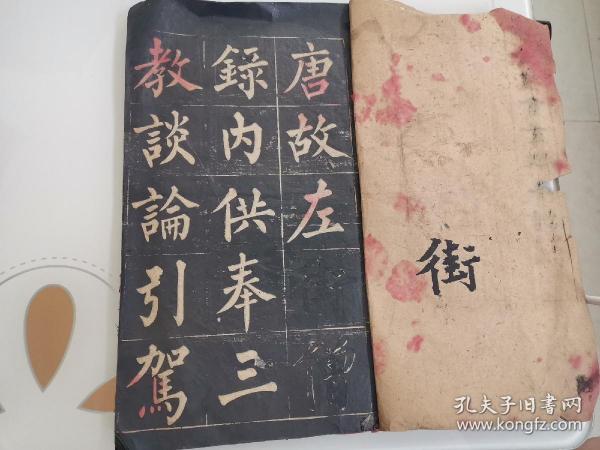 唐故左
錄內供奉三
教談論引駕
街
孔夫子旧书网
www.kongfz.com